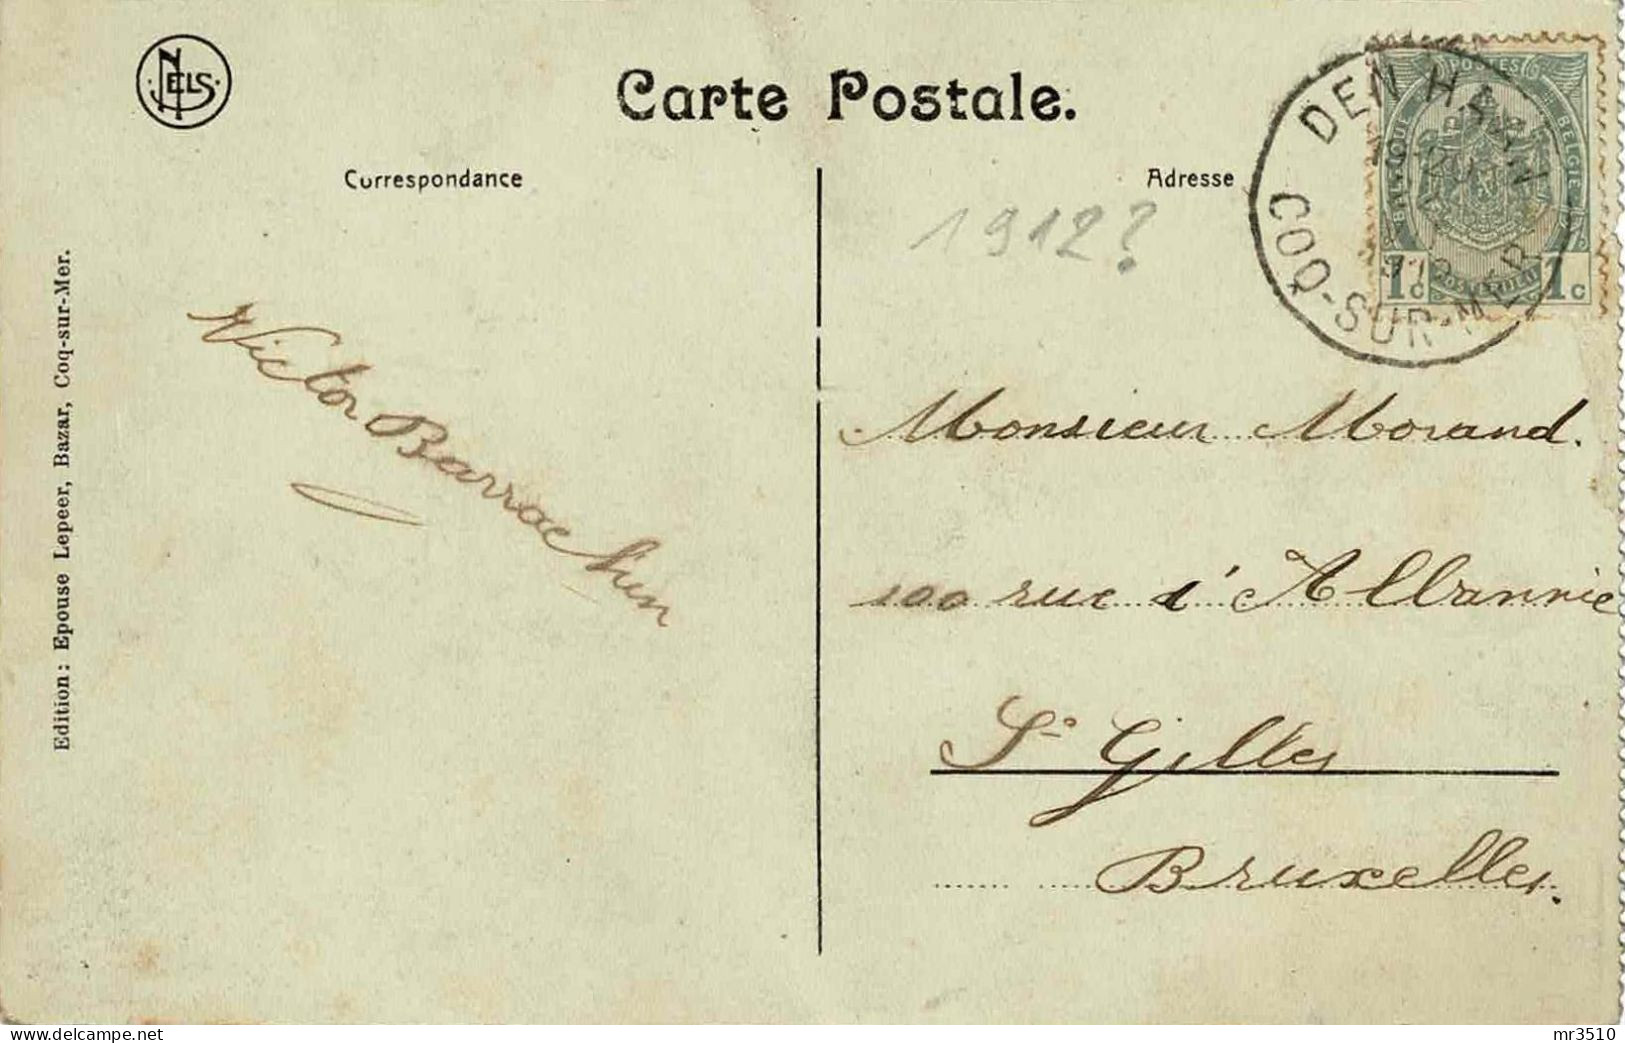 NELS
Carte Postale.
Correspondance
Adresse
DEN HAAN
COQ-SUR-MER
POSTES
BELGIQUE
BELGIE
POSTERIJEN
1c 1c
1912?
Edition : Epouse Lepeer, Bazar, Coq-sur-Mer.
Victor Barrac
Monsieur Morand.
100 rue d'Albannie
St Gilles
Bruxelles.
delcampe.net
mr3510